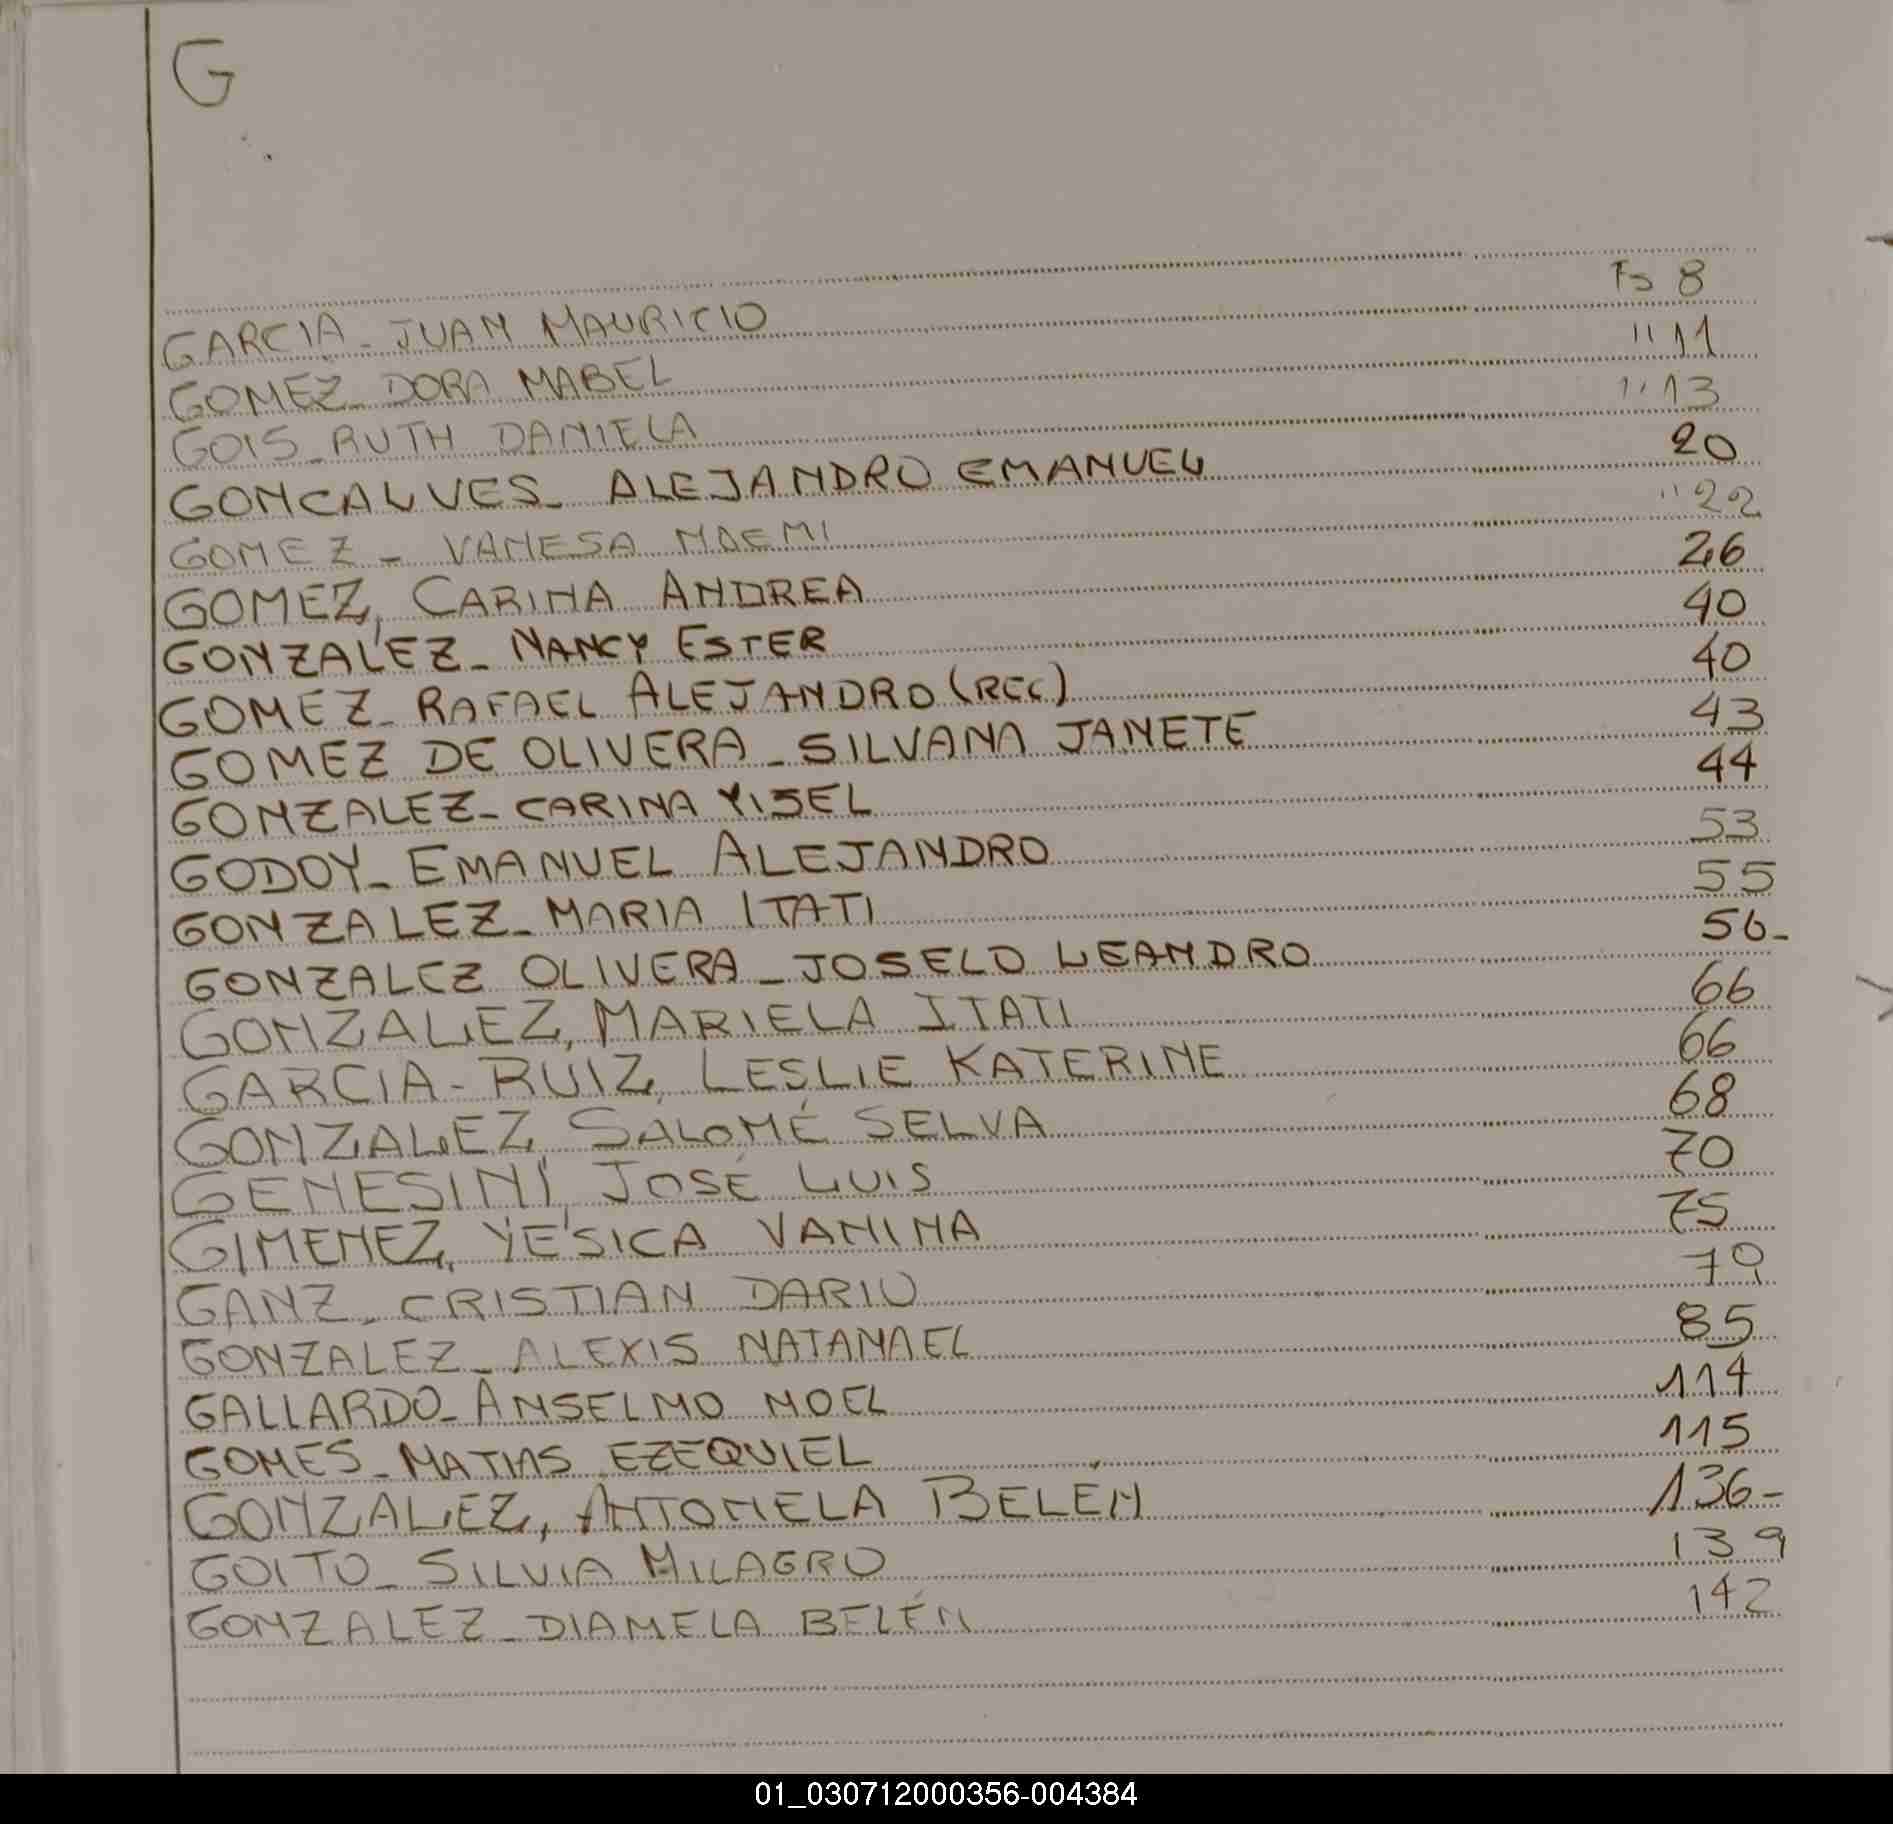 G
GARCIA - JUAN MAURICIO Fs 8
GOMEZ - DORA MABEL " 11
GOIS - RUTH DANIELA " 13
GONCALVES - ALEJANDRO EMANUEL 20
GOMEZ - VANESA NOEMI " 22
GOMEZ, CARINA ANDREA 26
GONZALEZ - NANCY ESTER 40
GOMEZ - RAFAEL ALEJANDRO (REC) 40
GOMEZ DE OLIVERA - SILVANA JANETE 43
GONZALEZ - CARINA YISEL 44
GODOY - EMANUEL ALEJANDRO 53
GONZALEZ - MARIA ITATI 55
GONZALEZ OLIVERA - JOSELO LEANDRO 56-
GONZALEZ, MARIELA ITATI 66
GARCIA - RUIZ, LESLIE KATERINE 66
GONZALEZ, SALOMÉ SELVA 68
GENESINI, JOSÉ LUIS 70
GIMENEZ, YESICA VANINA 75
GANZ - CRISTIAN DARIO 79
GONZALEZ - ALEXIS NATANAEL 85
GALLARDO - ANSELMO NOEL 114
GOMES - MATIAS EZEQUIEL 115
GONZALEZ, ANTONELA BELÉN 136-
GOITO - SILVIA MILAGRO 139
GONZALEZ - DIAMELA BELÉN 142
01_030712000356-004384